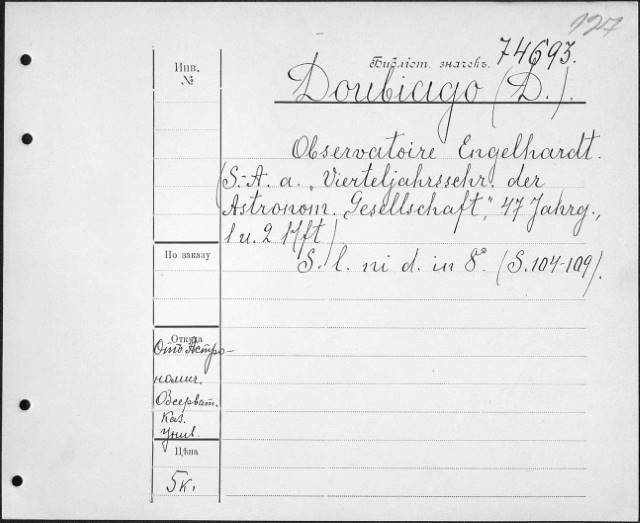 127
Инв.
№
Библіот. значекъ. 74693.
Doubiago (D.).
Observatoire Engelhardt.
(S.-A. a. „Vierteljahrssehr. der
Astronom. Gesellschaft", 47 Jahrg.,
1 u. 2 Hft)
S. l. ni d. in 8°. (S. 104-109).
По заказу
Откуда
Отъ Астро-
номич.
Обсерват.
Каз.
Унив.
Цѣна
5 к.